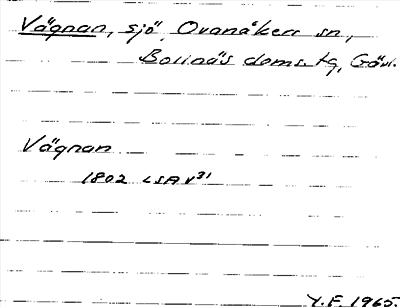 Vägnan, sjö, Ovanåker sn,
Bollnäs doms.tg, Gävl.
Vägnan
1802 LSA V31
Y.F. 1965.